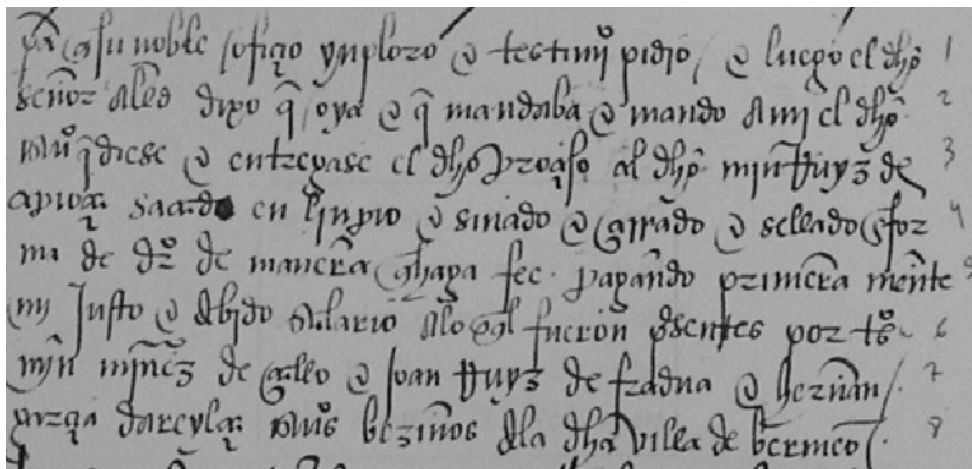 pa q su noble ofiçio ynploro e testimº pidio / e luego el dho 1
señor allde dixo q oya e q mandaba e mando a mi el dho 2
esnº q diese e entregase el dho proçeso al dho min rruyz de 3
sacado en linpio e sinado e çerrado e sellado e for 4
ma de drº de manera q haga fee pagando primera mente 5
my justo e debido salario a lo qual fueron presentes por tºs 6
min mnes de e joan rruyz de fradua e hernan / 7
darcylaz esnºs bezinos de la dha villa de bermeo / 8